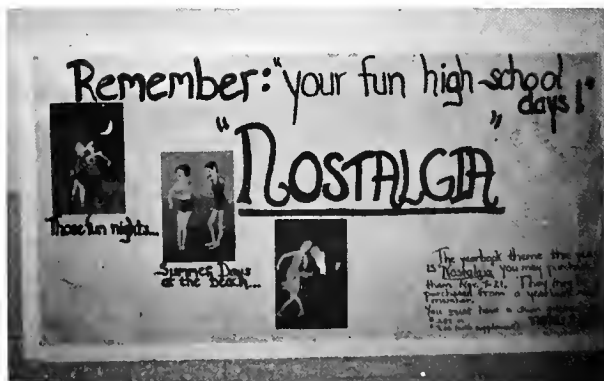 Remember: "your fun high-school
days!"
"NOSTALGIA"
Those fun nights...
Summer Days
at the beach...
The yearbook theme this year
is Nostalgia, you may purchase
them Nov. 7-21. They may be
purchased from a yearbook
member.
You must have a down